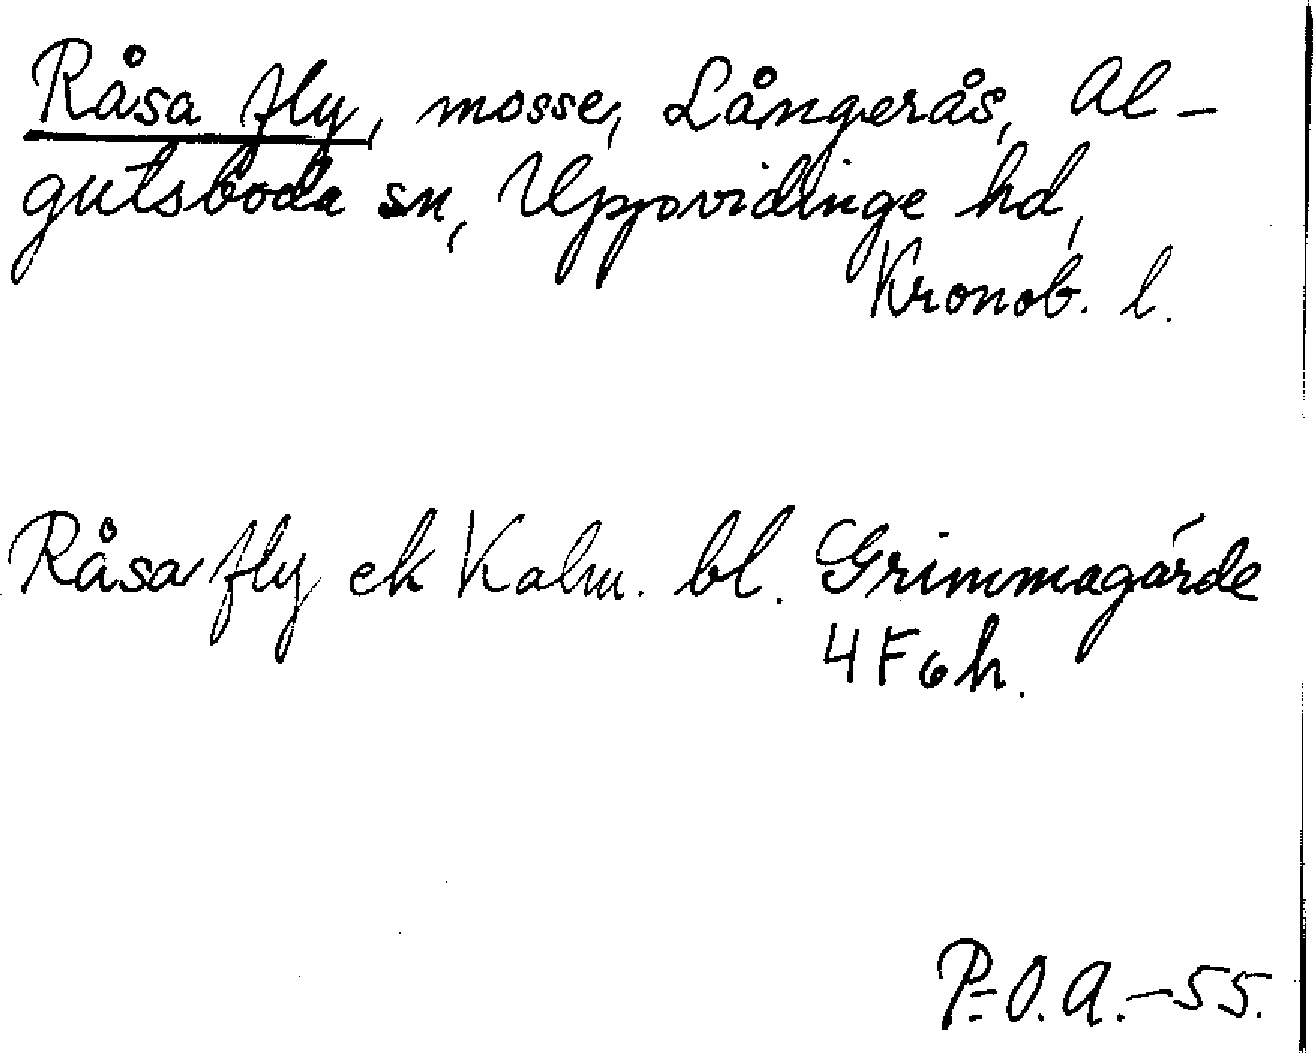 Råsa fly, mosse, Långerås, Al-
gutsboda sn, Uppvidinge hd,
Kronob. l.
Råsa fly ek Kalm. bl. Grimmagärde
4F6h.
P-O.A.-55.